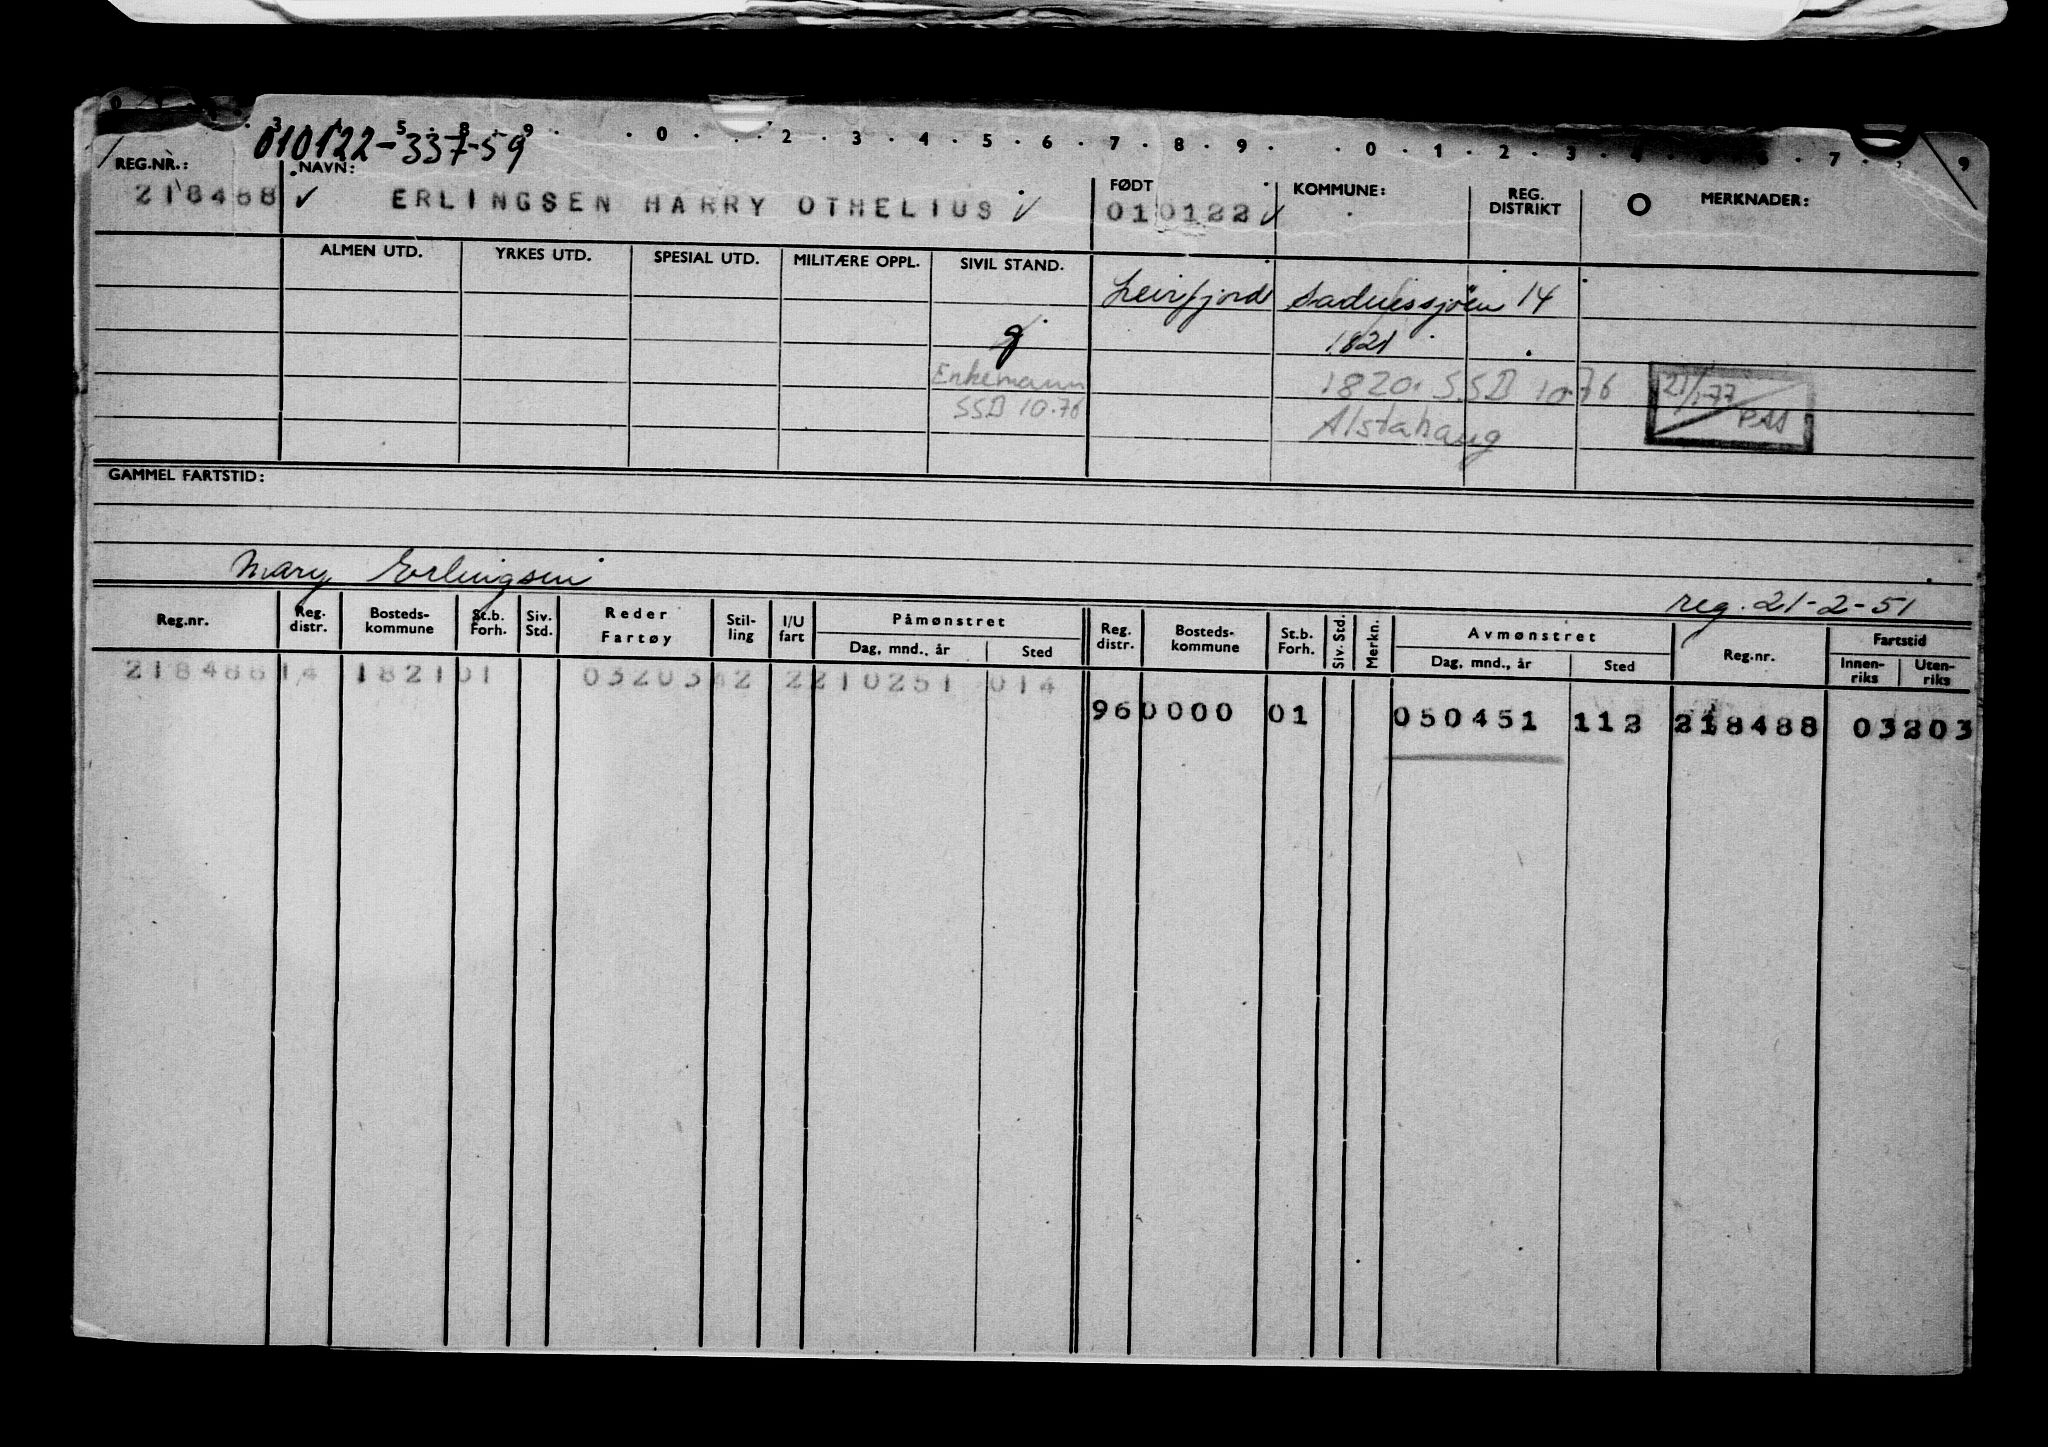 010122-33759
REG.NR.: NAVN: FØDT KOMMUNE: REG. DISTRIKT MERKNADER:
218488 ✓ ERLINGSEN HARRY OTHELIUS ✓ 010122 ✓
ALMEN UTD. YRKES UTD. SPESIAL UTD. MILITÆRE OPPL. SIVIL STAND.
Leirfjord Sandnessjøen 14
g 1821
Enkemann 1820 SSB 10.76 21/1-77
SSB 10.76 Alstahaug PAS
GAMMEL FARTSTID:
Mary Erlingsen
reg. 21-2-51
Reg.nr. Reg. distr. Bosteds-kommune St.b. Forh. Siv. Std. Reder Fartøy Stil-ling I/U fart Påmønstret Dag, mnd., år Sted Reg. distr. Bosteds-kommune St.b. Forh. Siv. Std. Merkn. Avmønstret Dag, mnd., år Sted Reg.nr. Fartstid Innen-riks Uten-riks
218488 14 1821 01 03203 42 2 210251 014
96 0000 01 050451 112 218488 03203